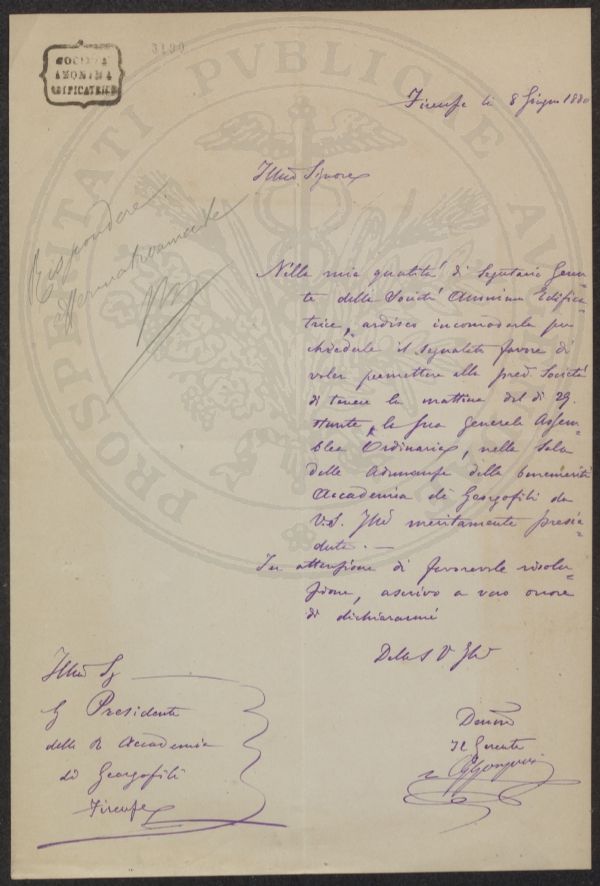 SOCIETÀ
ANONIMA
EDIFICATRICE
PROSPERITATI PUBLICAE AU
Firenze li 8 Giugno 1880
Illmo Signore
Rispondere
affermativamente
Nella mia qualità di Segretario Geren-
te della Società Anonima Edifica-
trice, ardisco incomodarla per
chiederle il segnalato favore di
voler permettere alla pred. Società
di tenere la mattina del dì 29.
stante, la sua generale Assem-
blea Ordinaria, nella Sala
delle Adunanze della benemerita
Accademia di Georgofili da
V.S. Illma meritamente presie-
duta. —
In attenzione di favorevole risolu-
zione, ascrivo a vero onore
di dichiararmi
Della S V Illma
Devmo
Il Gerente
Illmo Sig
Il Presidente
della R Accademia
di Georgofili
Firenze